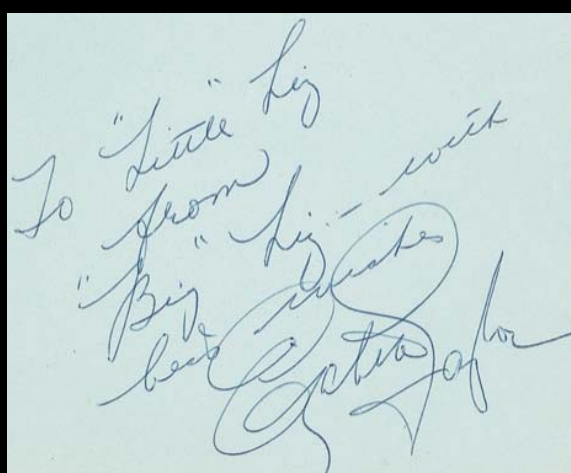 To "Little" Liz
from
"Big" Liz – with
best wishes
Elizabeth Taylor